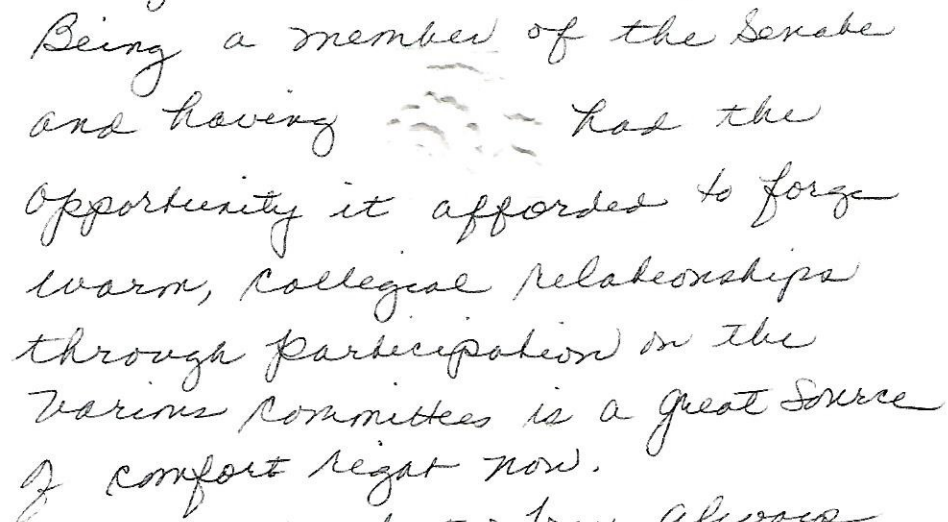 Being a member of the Senate
and having had the
opportunity it afforded to forge
warm, collegial relationships
through participation on the
various committees is a great source
of comfort right now.
always